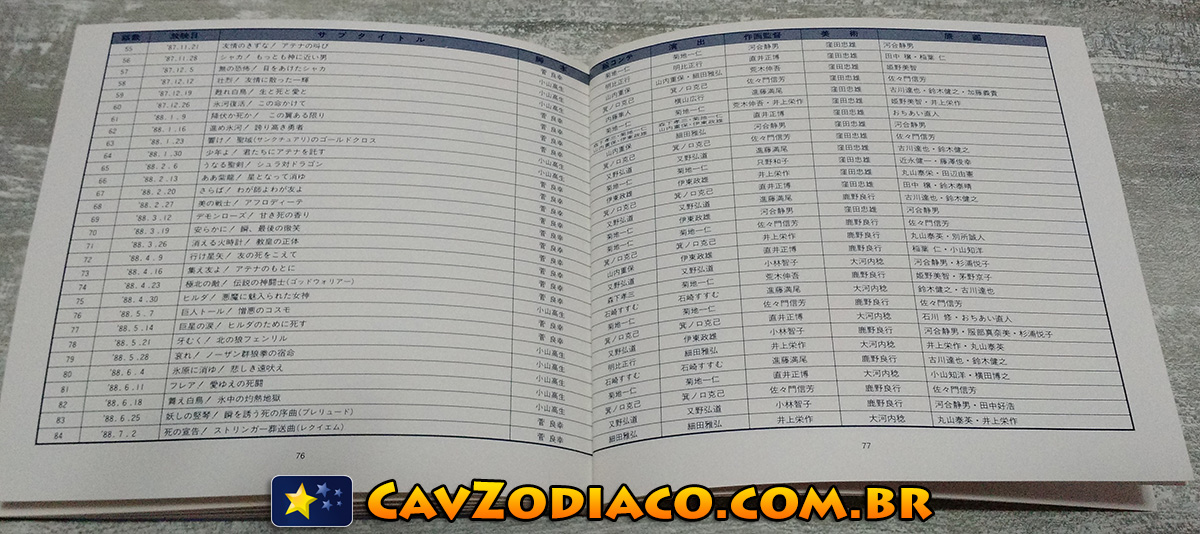 話数 放映日 サブタイトル
55 '87.11.21 友情のきずな！ アテナの叫び
56 '87.11.28 シャカ！ もっとも神に近い男
57 '87.12.5 無の恐怖！ 目をあけたシャカ
58 '87.12.12 壮烈！ 友情に散った一輝
59 '87.12.19 甦れ白鳥！ 生と死と愛と
60 '87.12.26 氷河復活！ この命かけて
61 '88.1.9 降伏か死か！ この翼ある限り
62 '88.1.16 進め氷河！ 誇り高き勇者
63 '88.1.23 響け！ 聖域(サンクチュアリ)のゴールドクロス
64 '88.1.30 少年よ！ 君たちにアテナを託す
65 '88.2.6 うなる聖剣！ シュラ対ドラゴン
66 '88.2.13 ああ紫龍！ 星となって消ゆ
67 '88.2.20 さらば！ わが師よわが友よ
68 '88.2.27 美の戦士！ アフロディーテ
69 '88.3.12 デモンローズ！ 甘き死の香り
70 '88.3.19 安らかに！ 瞬、最後の微笑
71 '88.3.26 消える火時計！ 教皇の正体
72 '88.4.9 行け星矢！ 友の死をこえて
73 '88.4.16 集え友よ！ アテナのもとに
74 '88.4.23 極北の敵！ 伝説の神闘士(ゴッドウォリアー)
75 '88.4.30 ヒルダ！ 悪魔に魅入られた女神
76 '88.5.7 巨人トール！ 憎悪のコスモ
77 '88.5.14 巨星の涙！ ヒルダのために死す
78 '88.5.21 牙むく！ 北の狼フェンリル
79 '88.5.28 哀れ！ ノーザン群狼拳の宿命
80 '88.6.4 氷原に消ゆ！ 悲しき遠吠え
81 '88.6.11 フレア！ 愛ゆえの死闘
82 '88.6.18 舞え白鳥！ 氷中の灼熱地獄
83 '88.6.25 妖しの竪琴！ 瞬を誘う死の序曲(プレリュード)
84 '88.7.2 死の宣告！ ストリンガー葬送曲(レクイエム)
76
絵コンテ 演出 作画監督 美術 原画
菊地一仁 菊地一仁 河合静男 窪田忠雄 河合静男
明比正行 明比正行 直井正博 窪田忠雄 田中 穣・稲葉 仁
山内重保 山内重保・細田雅弘 荒木伸吾 窪田忠雄 姫野美智
箕ノ口克己 箕ノ口克己 佐々門信芳 窪田忠雄 佐々門信芳
内藤車人 横山広行 進藤満尾 窪田忠雄 古川達也・鈴木健之・加藤義貴
菊地一仁 菊地一仁 荒木伸吾・井上栄作 窪田忠雄 姫野美智・井上栄作
森下孝三・菊地一仁 山内重保・伊東政雄 直井正博 窪田忠雄 おちあい直人
山内重保 細田雅弘 河合静男 窪田忠雄 河合静男
箕ノ口克己 箕ノ口克己 佐々門信芳 窪田忠雄 佐々門信芳
又野弘道 又野弘道 進藤満尾 窪田忠雄 古川達也・鈴木健之
菊地一仁 菊地一仁 只野和子 窪田忠雄 近永健一・藤澤俊幸
伊東政雄 井上栄作 窪田忠雄 丸山泰英・田辺由憲
箕ノ口克己 直井正博 窪田忠雄 田中 穣・鈴木泰晴
又野弘道 進藤満尾 鹿野良行 古川達也・鈴木健之
伊東政雄 河合静男 窪田忠雄 河合静男
菊地一仁 佐々門信芳 鹿野良行 佐々門信芳
箕ノ口克己 井上栄作 鹿野良行 丸山泰英・別所誠人
伊東政雄 直井正博 鹿野良行 稲葉 仁・小山知洋
又野弘道 小林智子 大河内稔 河合静男・杉浦悦子
森下孝三 菊地一仁 荒木伸吾 鹿野良行 姫野美智・茅野京子
石崎すすむ 石崎すすむ 進藤満尾 大河内稔 鈴木健之・古川達也
菊地一仁 菊地一仁 佐々門信芳 鹿野良行 佐々門信芳
箕ノ口克己 箕ノ口克己 直井正博 大河内稔 石川 修・おちあい直人
伊東政雄 小林智子 鹿野良行 河合静男・服部真奈美・杉浦悦子
又野弘道 細田雅弘 井上栄作 大河内稔 井上栄作・丸山泰英
明比正行 石崎すすむ 進藤満尾 鹿野良行 古川達也・鈴木健之
石崎すすむ 菊地一仁 直井正博 大河内稔 小山知洋・横田博之
菊地一仁 箕ノ口克己 佐々門信芳 鹿野良行 佐々門信芳
箕ノ口克己 又野弘道 小林智子 鹿野良行 河合静男・田中好浩
又野弘道 細田雅弘 井上栄作 大河内稔 丸山泰英・井上栄作
77
CavZodiaco.com.br